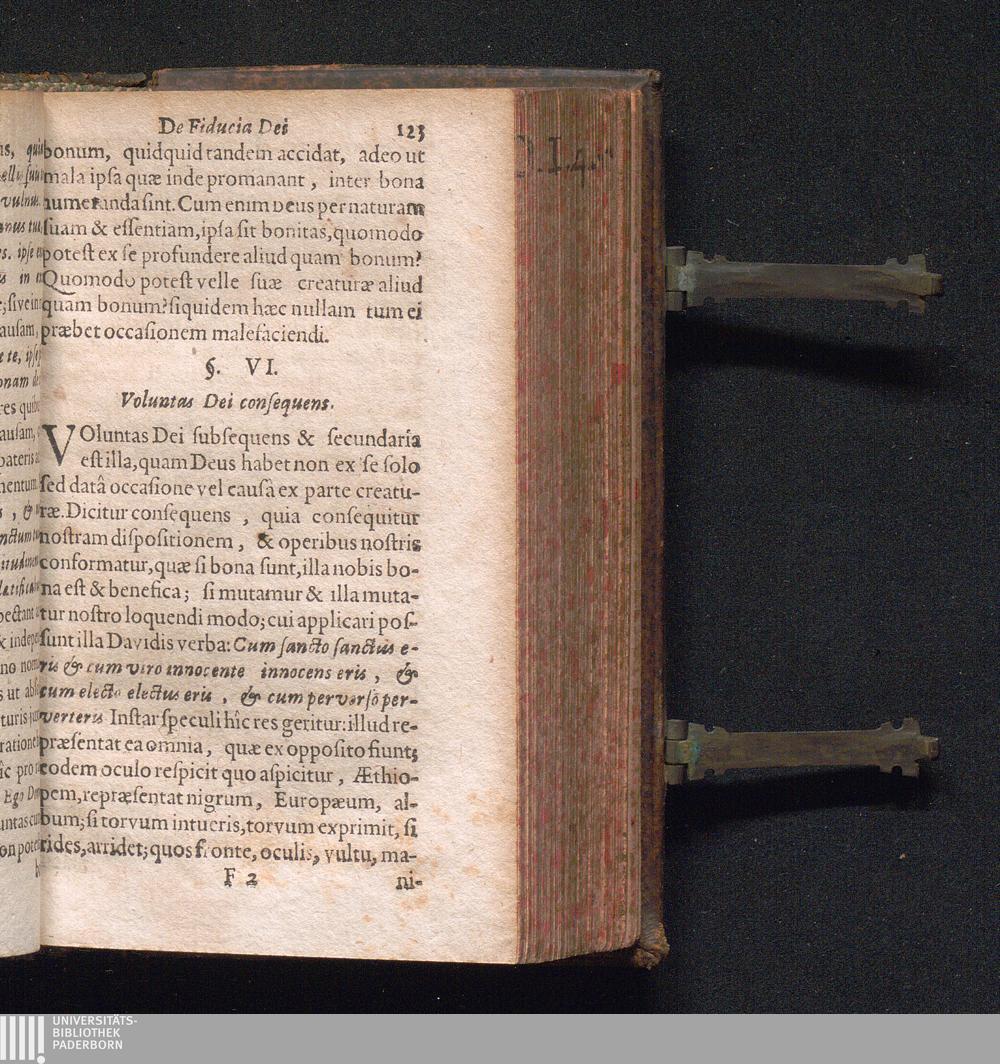 De Fiducia Dei 123
bonum, quidquid tandem accidat, adeo ut
mala ipſa quæ inde promanant, inter bona
numeranda ſint. Cum enim Deus per naturam
ſuam & eſſentiam, ipſa ſit bonitas, quomodo
poteſt ex ſe profundere aliud quam bonum?
Quomodo poteſt velle ſuæ creaturæ aliud
quam bonum? ſiquidem hæc nullam tum ei
præbet occaſionem malefaciendi.
§. VI.
Voluntas Dei conſequens.
VOluntas Dei ſubſequens & ſecundaria
eſt illa, quam Deus habet non ex ſe ſolo
ſed datâ occaſione vel cauſa ex parte creatu-
ræ. Dicitur conſequens, quia conſequitur
noſtram diſpoſitionem, & operibus noſtris
conformatur, quæ ſi bona ſunt, illa nobis bo-
na eſt & benefica; ſi mutamur & illa muta-
tur noſtro loquendi modo; cui applicari poſ-
ſunt illa Davidis verba: Cum ſancto ſanctus e-
ris & cum viro innocente innocens eris, &
cum electo electus eris, & cum perverſo per-
verteris Inſtar ſpeculi hîc res geritur: illud re-
præſentat ea omnia, quæ ex oppoſito fiunt;
eodem oculo reſpicit quo aſpicitur, Æthio-
pem, repræſentat nigrum, Europæum, al-
bum; ſi torvum intueris, torvum exprimit, ſi
rides, arridet; quos fronte, oculis, vultu, ma-
F 2 ni-
UNIVERSITÄTS-
BIBLIOTHEK
PADERBORN